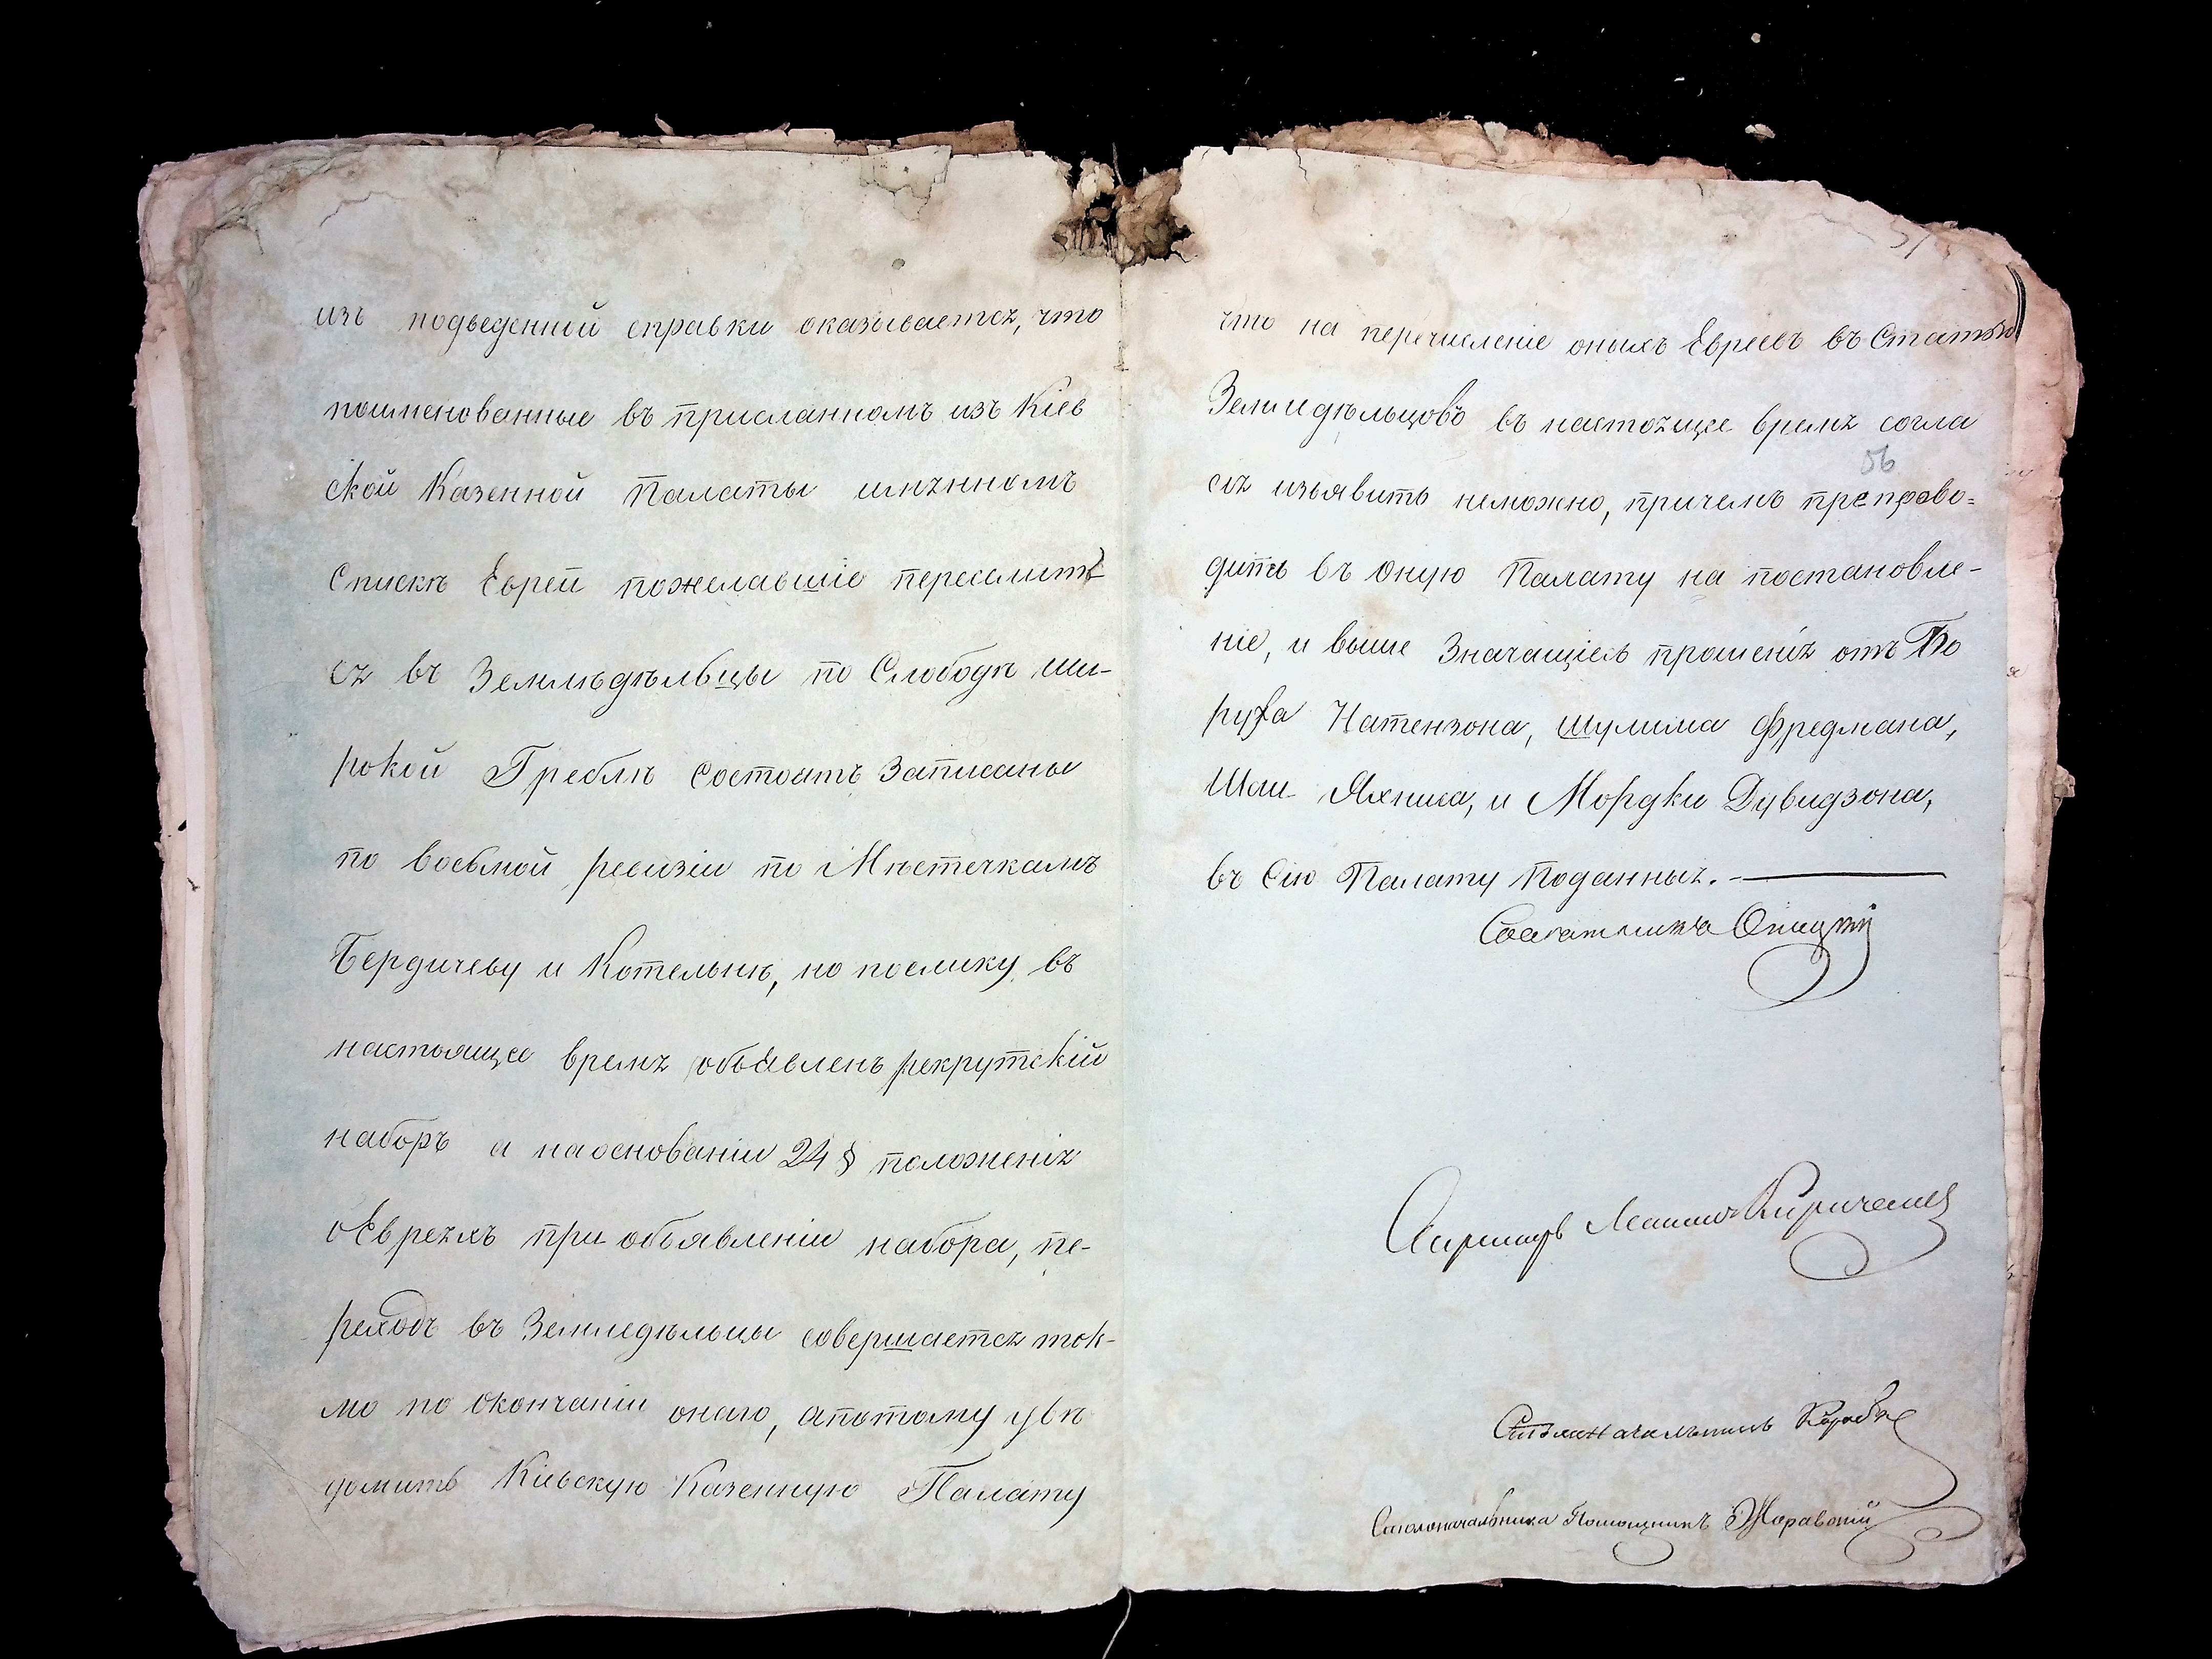 изъ подведенной справки оказывается, что
поименованные въ присланномъ изъ Кіев
ской Казенной Палаты имянномъ
Спискѣ Евреи пожелавшіе переселить
ся въ Землѣдѣльцы по Слободѣ Ши-
рокой Греблѣ состоятъ записаны
по восьмой ревизіи по Мѣстечкамъ
Бердичеву и Котельнѣ, но поелику въ
настоящее время объявленъ рекрутскій
наборъ а на основаніи 24 § положенія
о Евреяхъ при объявленіи набора, пе-
реходъ въ Земледѣльцы совершается ток-
мо по окончаніи онаго, а потому увѣ
домить Кіевскую Казенную Палату
что на перечисленіе оныхъ Евреевъ въ
Земледѣльцовъ въ настоящее время согла
56
сія изъявить неможно, причемъ препрово=
дить въ оную Палату на постановле-
ніе, и выше значащіесь прошенія отъ Бо
руха Натензона, Шулима Фредмана,
Яхниса, и Мордки Дувидзона,
въ Сію Палату поданныя.
Совѣтникъ
Столоначальникъ
Столоначальника Помощникъ Жоравскій